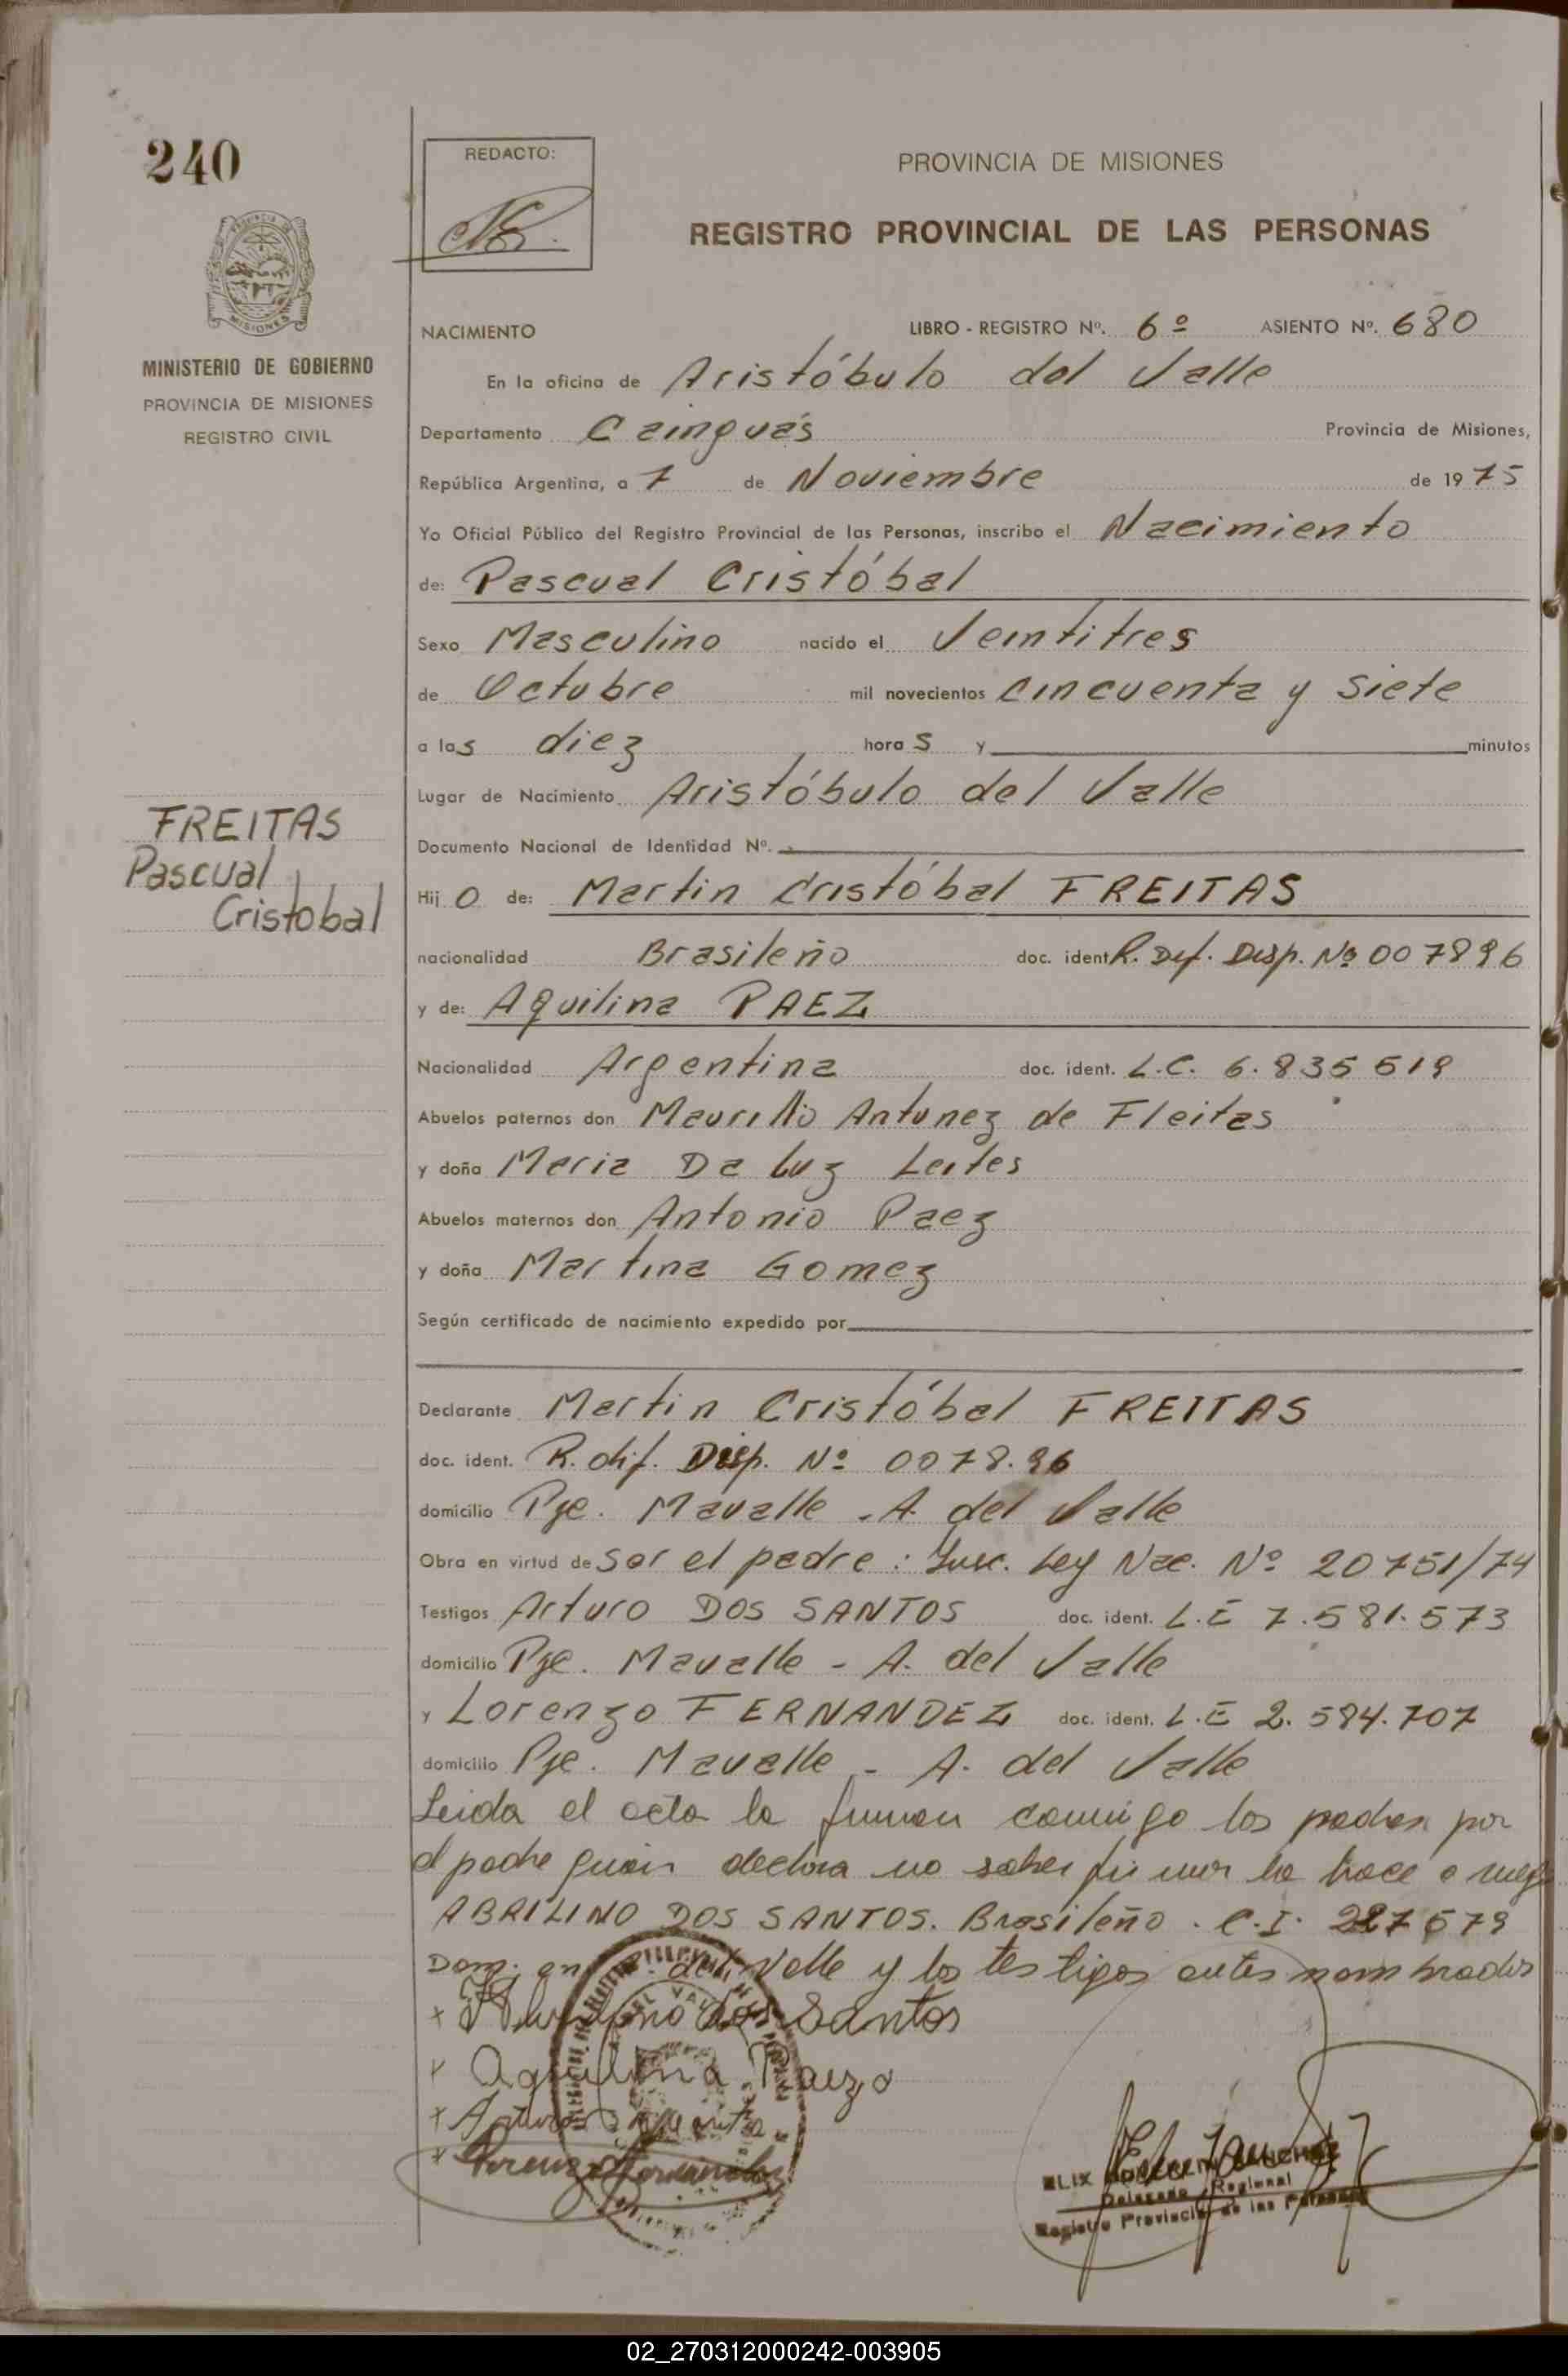 240
REDACTO:
PROVINCIA DE MISIONES
REGISTRO PROVINCIAL DE LAS PERSONAS
MISIONES
MINISTERIO DE GOBIERNO
PROVINCIA DE MISIONES
REGISTRO CIVIL
NACIMIENTO LIBRO - REGISTRO Nº. 6º ASIENTO Nº. 680
En la oficina de Aristóbulo del Valle
Departamento Cainguás Provincia de Misiones,
República Argentina, a 7 de Noviembre de 1975
Yo Oficial Público del Registro Provincial de las Personas, inscribo el Nacimiento
de: Pascual Cristóbal
Sexo Masculino nacido el Veintitres
de Octubre mil novecientos cincuenta y siete
a las diez horas y minutos
Lugar de Nacimiento Aristóbulo del Valle
Documento Nacional de Identidad Nº.
FREITAS
Pascual
Cristobal
Hijo de: Martin Cristóbal FREITAS
nacionalidad Brasileño doc. ident. R. Dif. Disp. Nº 007896
y de: Aquilina PAEZ
Nacionalidad Argentina doc. ident. L.C. 6.835519
Abuelos paternos don Maurilio Antunez de Fleitas
y doña Maria Da Luz Leites
Abuelos maternos don Antonio Paez
y doña Martina Gomez
Según certificado de nacimiento expedido por
Declarante Martin Cristóbal FREITAS
doc. ident. R. dif. Disp. Nº 0078.96
domicilio Pje. Mavalle - A. del Valle
Obra en virtud de ser el padre: Insc. Ley Nac. Nº 20751/74
Testigos Arturo DOS SANTOS doc. ident. L.E 7.581.573
domicilio Pje. Mavalle - A. del Valle
y Lorenzo FERNANDEZ doc. ident. L.E 2.584.707
domicilio Pje. Mavalle - A. del Valle
Leida el acta la firman conmigo los padres por
el padre quien declara no saber firmar lo hace a ruego
ABRILINO DOS SANTOS. Brasileño. C.I. 287679
Dom. en A. del Valle y los testigos antes nombrados
dos Santos
Aquilina Paez
Arturo
Lorenzo Fernandez
Delegado Regional
Registro Provincial de las Personas
02_270312000242-003905